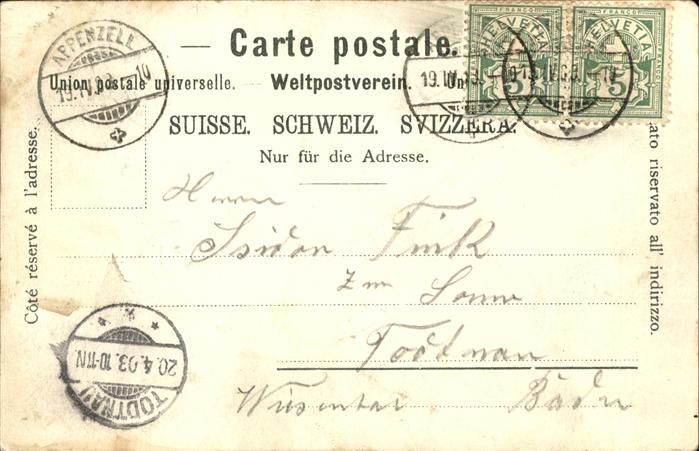 Carte postale.
Union postale universelle. — Weltpostverein.
SUISSE. SCHWEIZ. SVIZZERA.
Nur für die Adresse.
Côté réservé à l'adresse.
ato riservato all' indirizzo.
APPENZELL
19.IV.03.–10
FRANCO
HELVETIA
5
FRANCO
HELVETIA
5
19.IV.03.–10
19.IV.03.–10
Herrn
Isidor Fink
zur Sonne
Todtnau
Wiesental Baden
TODTNAU
20.4.03.10-11N.